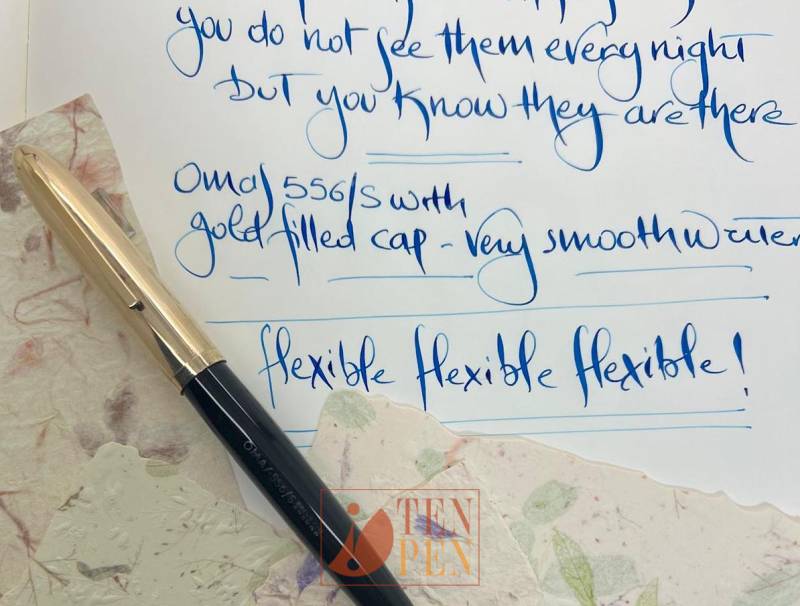 you do not see them every night
but you know they are there
Omas 556/S with
gold filled cap - very smooth writer
flexible flexible flexible!
OMAS 556/S
TEN
PEN